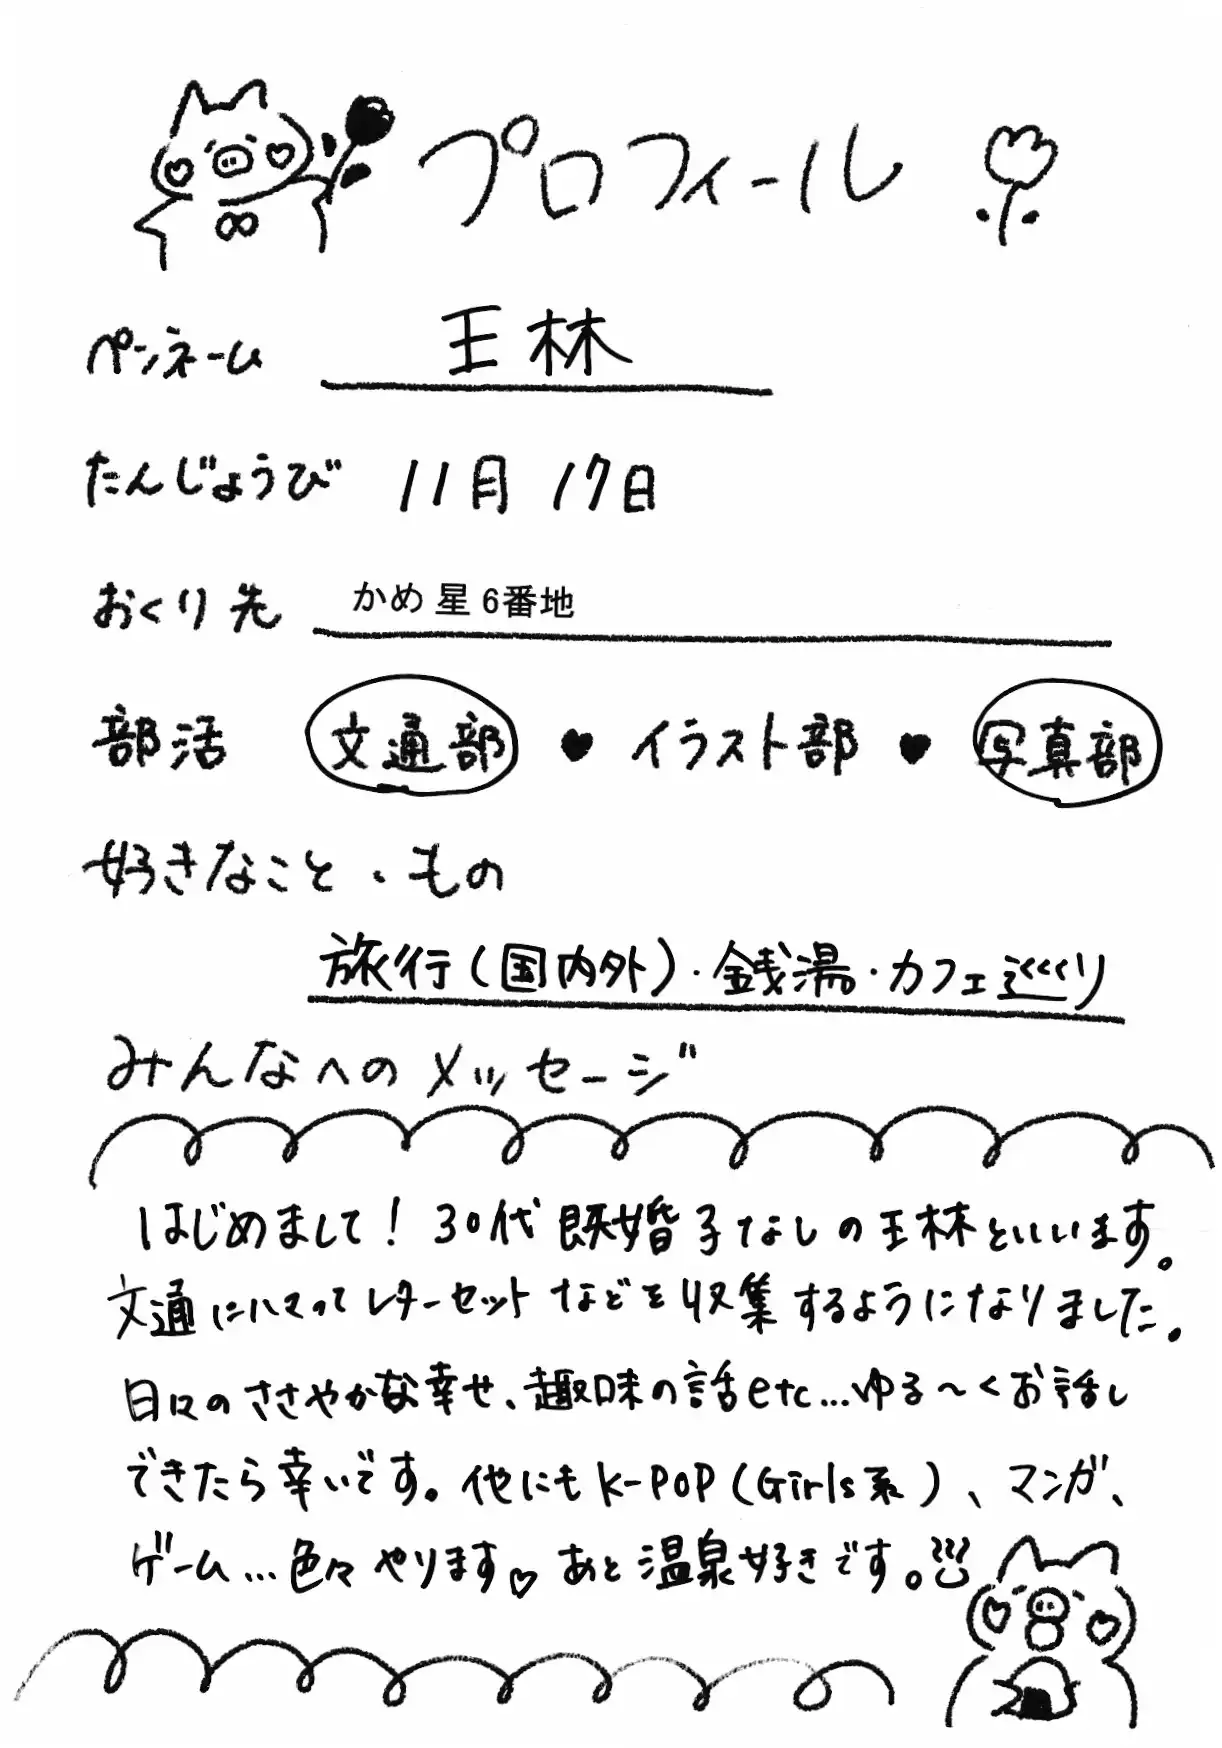 プロフィール
ペンネーム 王林
たんじょうび 11月 17日
おくり先 かめ 星 6番地
部活 文通部 ♥ イラスト部 ♥ 写真部
好きなこと・もの
旅行(国内外)・銭湯・カフェ巡り
みんなへのメッセージ
はじめまして! 30代既婚子なしの王林といいます。
文通にハマってレターセットなどを収集するようになりました。
日々のささやかな幸せ、趣味の話etc...ゆる〜くお話し
できたら幸いです。他にもK-POP(Girls系)、マンガ、
ゲーム...色々やります♡ あと温泉好きです。♨